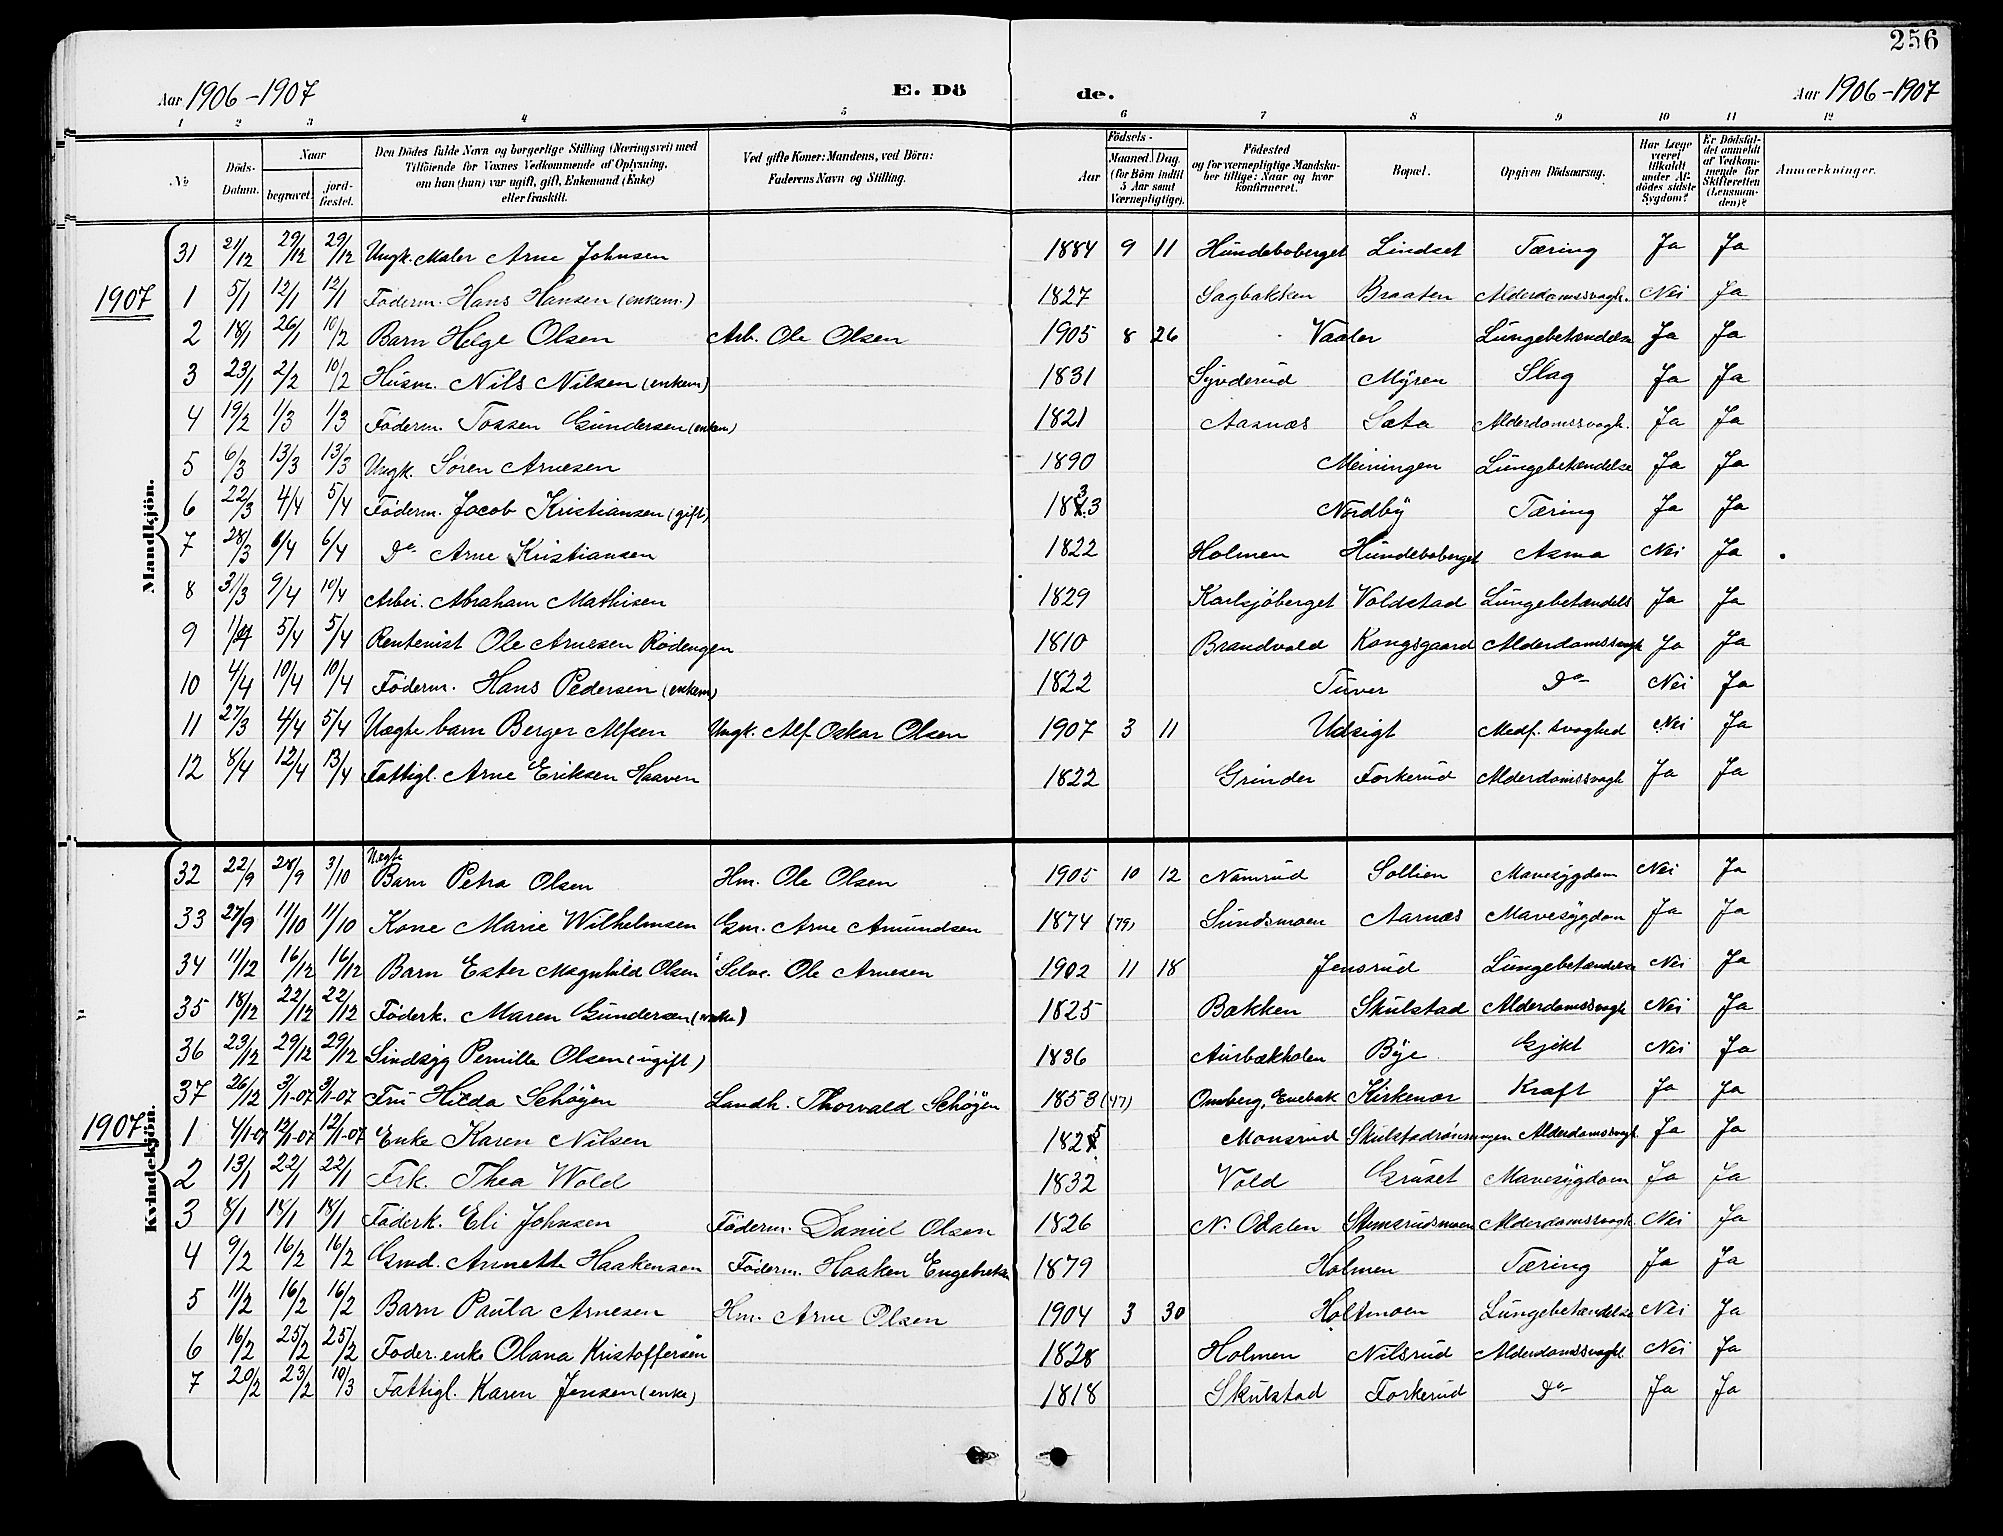 256
Aar 1906-1907 E. Dö de. Aar 1906-1907
1 2 3 4 5 6 7 8 9 10 11 12
No Döds-Datum. Naar begravet. jord-fæstet. Den Dödes fulde Navn og borgerlige Stilling (Næringsvei) med Tilföiende for Voxnes Vedkommende af Oplysning, om han (hun) var ugift, gift, Enkemand (Enke) eller fraskilt. Ved gifte Koner: Mandens, ved Börn: Faderens Navn og Stilling. Födsels- Aar Maaned. Dag. (for Börn indtil 5 Aar samt Værnepligtige). Födested og for værnepligtige Mandskaber tillige: Naar og hvor konfirmeret. Bopæl. Opgiven Dödsaarsag. Har Læge været tilkaldt under Afdödes sidste Sygdom? Er Dödsfaldet anmeldt af Vedkommende for Skifteretten (Lensmanden)? Anmærkninger.
Mandkjön.
31 21/12 29/12 29/12 Ungk. Maler Arne Johnsen 1884 9 11 Hundeboberget Lindset Tæring Ja Ja
1907
1 5/1 12/1 12/1 Föderm. Hans Hansen (enkem.) 1827 Sagbakken Braaten Alderdomssvagh. Nei Ja
2 18/1 26/1 10/2 Barn Helge Olsen Arb. Ole Olsen 1905 8 26 Vaaler Lungebetændelse Ja Ja
3 23/1 2/2 10/2 Husm. Nils Nilsen (enkem) 1831 Syvderud Myren Slag Ja Ja
4 19/2 1/3 1/3 Föderm. Tossen Gundersen (enkem) 1821 Aasnæs Sæta Alderdomssvagh. Ja Ja
5 6/3 13/3 13/3 Ungk. Sören Arnesen 1890 Meiningen Lungebetændelse Ja Ja
6 22/3 4/4 5/4 Föderm. Jacob Kristiansen (gift) 1833 Nordby Tæring Ja Ja
7 28/3 6/4 6/4 Do Arne Kristiansen 1822 Holmen Hundeboberget Asma Nei Ja
8 31/3 9/4 10/4 Arbei. Abraham Mathisen 1829 Karlsjöberget Voldstad Lungebetændels Ja Ja
9 1/4 5/4 5/4 Rentenist Ole Arnesen Rödengen 1810 Brandvold Kongsgaard Alderdomssvagh Ja Ja
10 4/4 10/4 10/4 Föderm. Hans Pedersen (enkem) 1822 Tuver Do Nei Ja
11 27/3 4/4 5/4 Uægte barn Berger Alfsen Ungk. Alf Oskar Olsen 1907 3 11 Udsigt Medf. svaghed Nei Ja
12 8/4 12/4 13/4 Fattigl. Arne Eriksen Haaven 1822 Grinder Forkerud Alderdomssvagh Ja Ja
Kvindekjön.
32 22/9 28/9 3/10 Uegte Barn Petra Olsen Hm. Ole Olsen 1905 10 12 Namrud Sollien Mavesygdom Nei Ja
33 27/9 11/10 11/10 Kone Marie Wilhelmsen Gm. Arne Amundsen 1874 (79) Sundsmoen Aarnæs Mavesygdom Ja Ja
34 11/12 16/12 16/12 Barn Ester Magnhild Olsen Selve. Ole Arnesen 1902 11 18 Jensrud Lungebetændelse Nei Ja
35 18/12 22/12 22/12 Föderk. Maren Gundersen (enke) 1825 Bakken Skulstad Alderdomssvagh Nei Ja
36 23/12 29/12 29/12 Sindsyg Pernille Olsen (ugift) 1836 Aurbækholen Bye Gjikt Nei Ja
37 26/12 3/1-07 3/1-07 Fru Hilda Schöyen Landh. Thorvald Schöyen 1853 (47) Omberg, Enebak Kirkenær Kræft Ja Ja
1907
1 4/1-07 12/1-07 12/1-07 Enke Karen Nilsen 1825 Monsrud Skulstadrönningen Alderdomssvagh. Ja Ja
2 13/1 22/1 22/1 Frk. Thea Wold 1832 Vold Gruset Mavesygdom Ja Ja
3 8/1 18/1 18/1 Föderk. Eli Johnsen Föderm. Daniel Olsen 1826 N. Odalen Stemsrudsmoen Alderdomssvagh Nei Ja
4 9/2 16/2 16/2 Gmd. Annette Haakensen Föderm. Haaken Engebretsen 1879 Holmen Tæring Ja Ja
5 11/2 16/2 16/2 Barn Paula Arnesen Hm. Arne Olsen 1904 3 30 Holtmoen Lungebetændelse Nei Ja
6 16/2 25/2 25/2 Föder. enke Olana Kristoffersen 1828 Holmen Nilsrud Alderdomssvagh Nei Ja
7 20/2 23/2 10/3 Fattigl. Karen Jensen (enke) 1818 Skulstad Forkerud Do Ja Ja